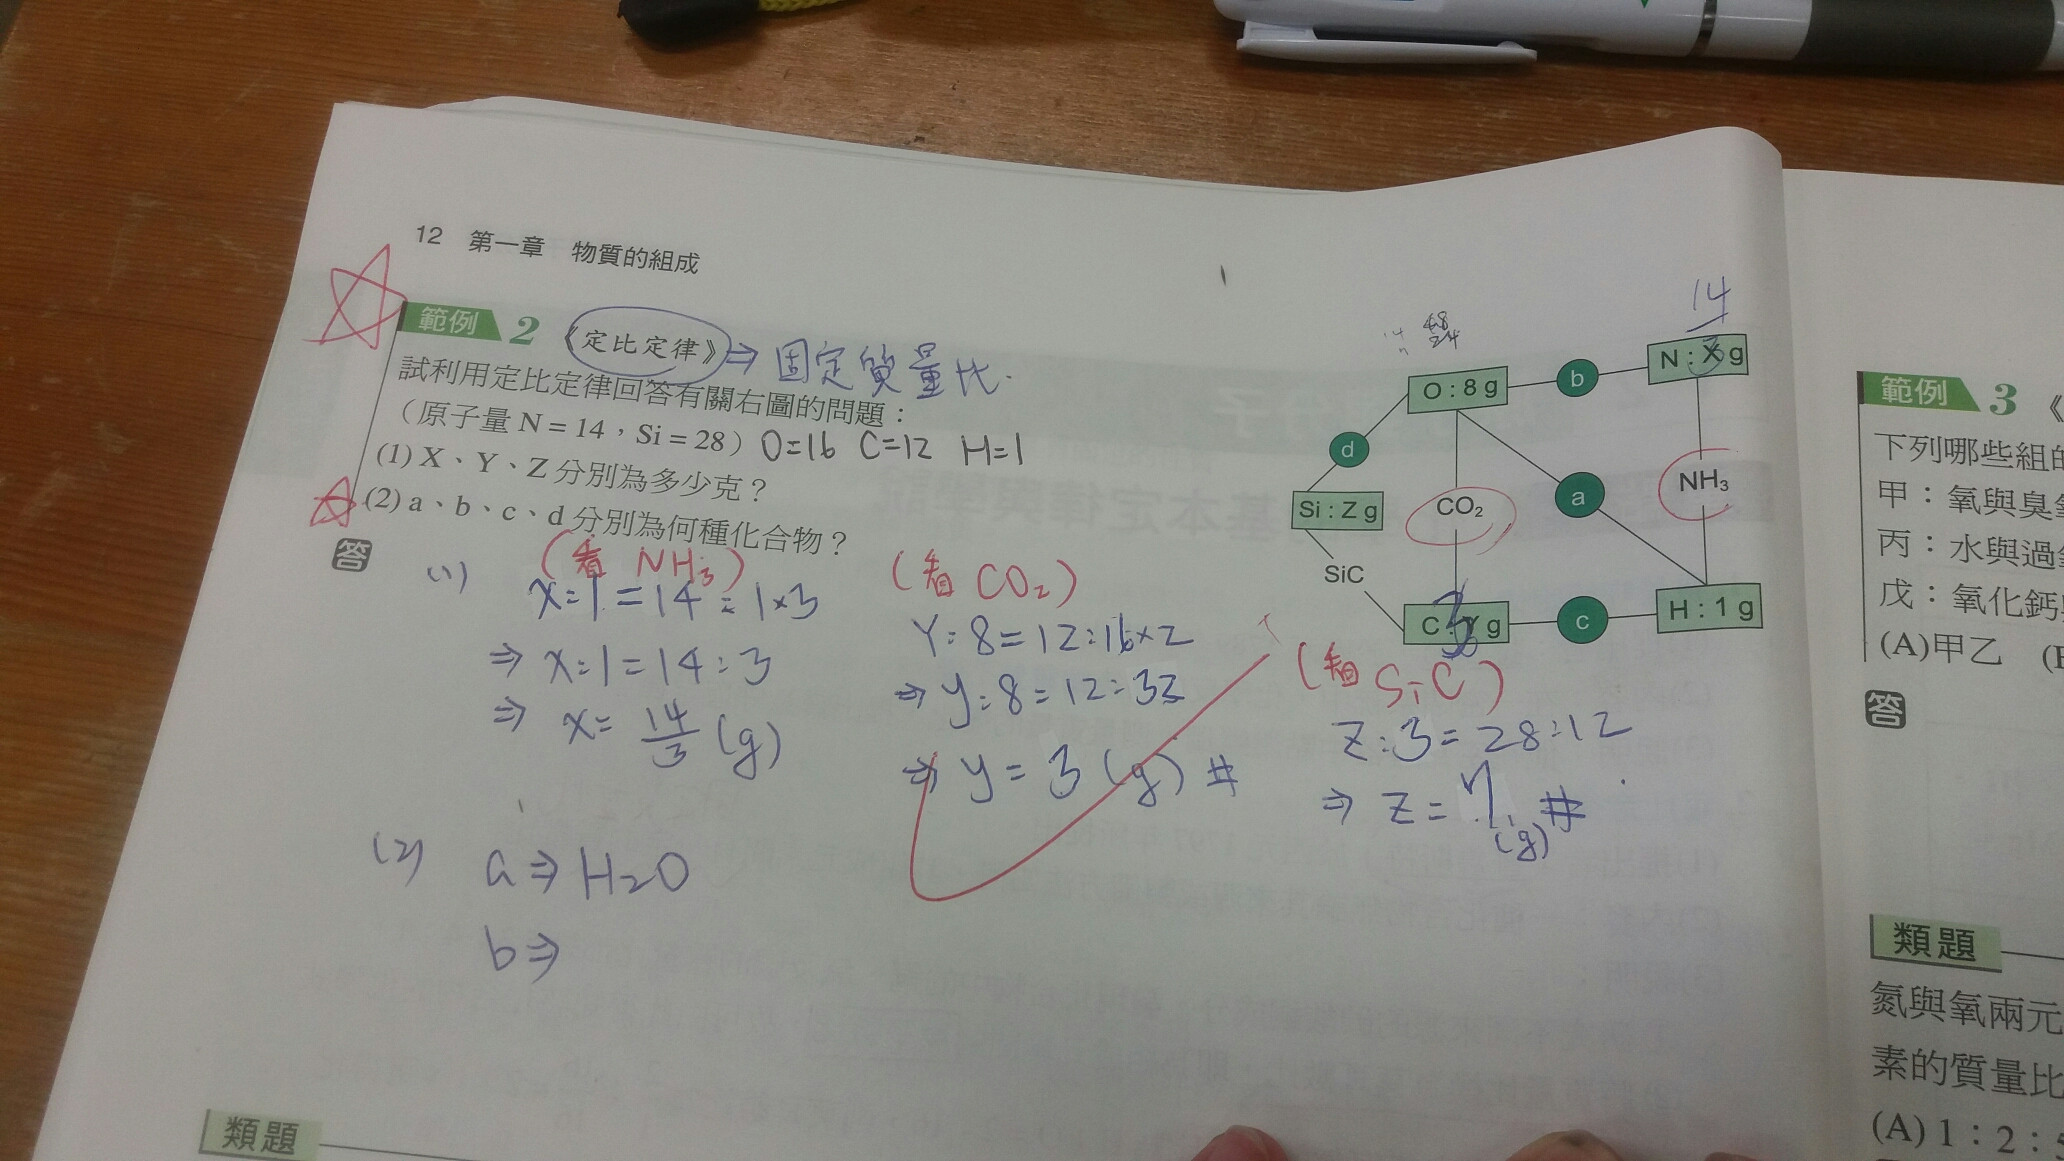 12 第一章 物質的組成
範例 2 《定比定律》⇒ 固定質量比.
試利用定比定律回答有關右圖的問題：
（原子量 N = 14，Si = 28）O=16 C=12 H=1
(1) X、Y、Z 分別為多少克？
(2) a、b、c、d 分別為何種化合物？
14
48
24
O : 8 g
b
N : X g
3
d
Si : Z g
CO₂
a
NH₃
SiC
C : Y g
3
c
H : 1 g
答
(1)
(看 NH₃)
x:1=14:1×3
⇒ x:1=14:3
⇒ x= 14/3 (g)
(看 CO₂)
Y:8=12:16×2
⇒ y:8=12:32
⇒ y=3(g)#
(看 SiC)
Z:3=28:12
⇒ Z=7(g)#
(2) a⇒H₂O
b⇒
類題
範例 3 《
下列哪些組的
甲：氧與臭氧
丙：水與過氧
戊：氧化鈣
(A)甲乙
答
類題
氮與氧兩元
素的質量比
(A) 1：2：